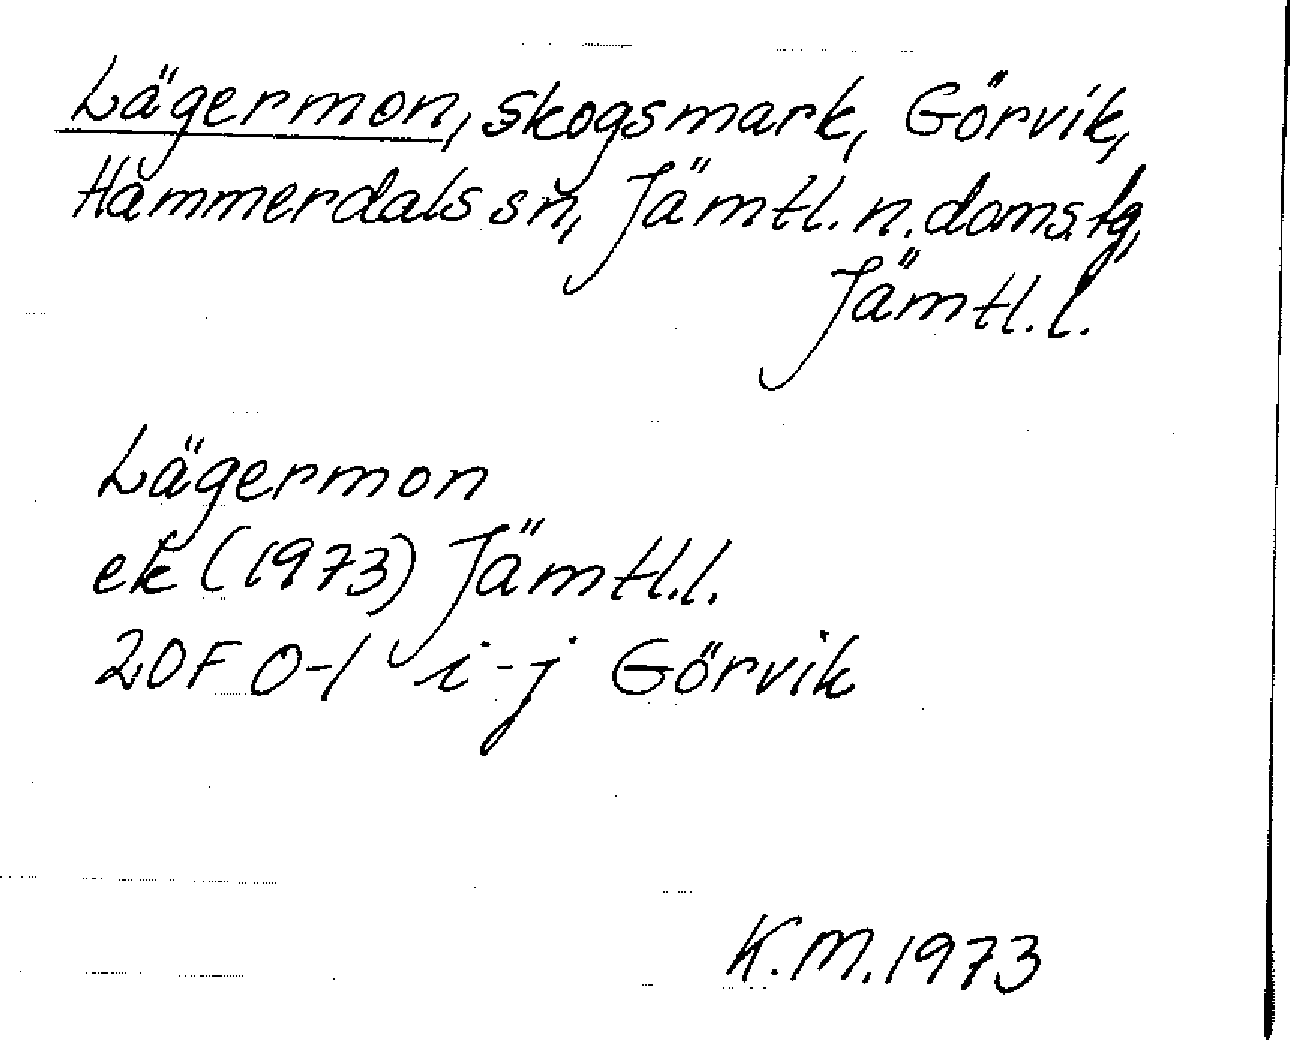 Lägermon, skogsmark, Görvik,
Hammerdals sn, Jämtl. n. doms.lg,
Jämtl. l.
Lägermon
ek (1973) Jämtl. l.
20F 0-1 i-j Görvik
K.M. 1973